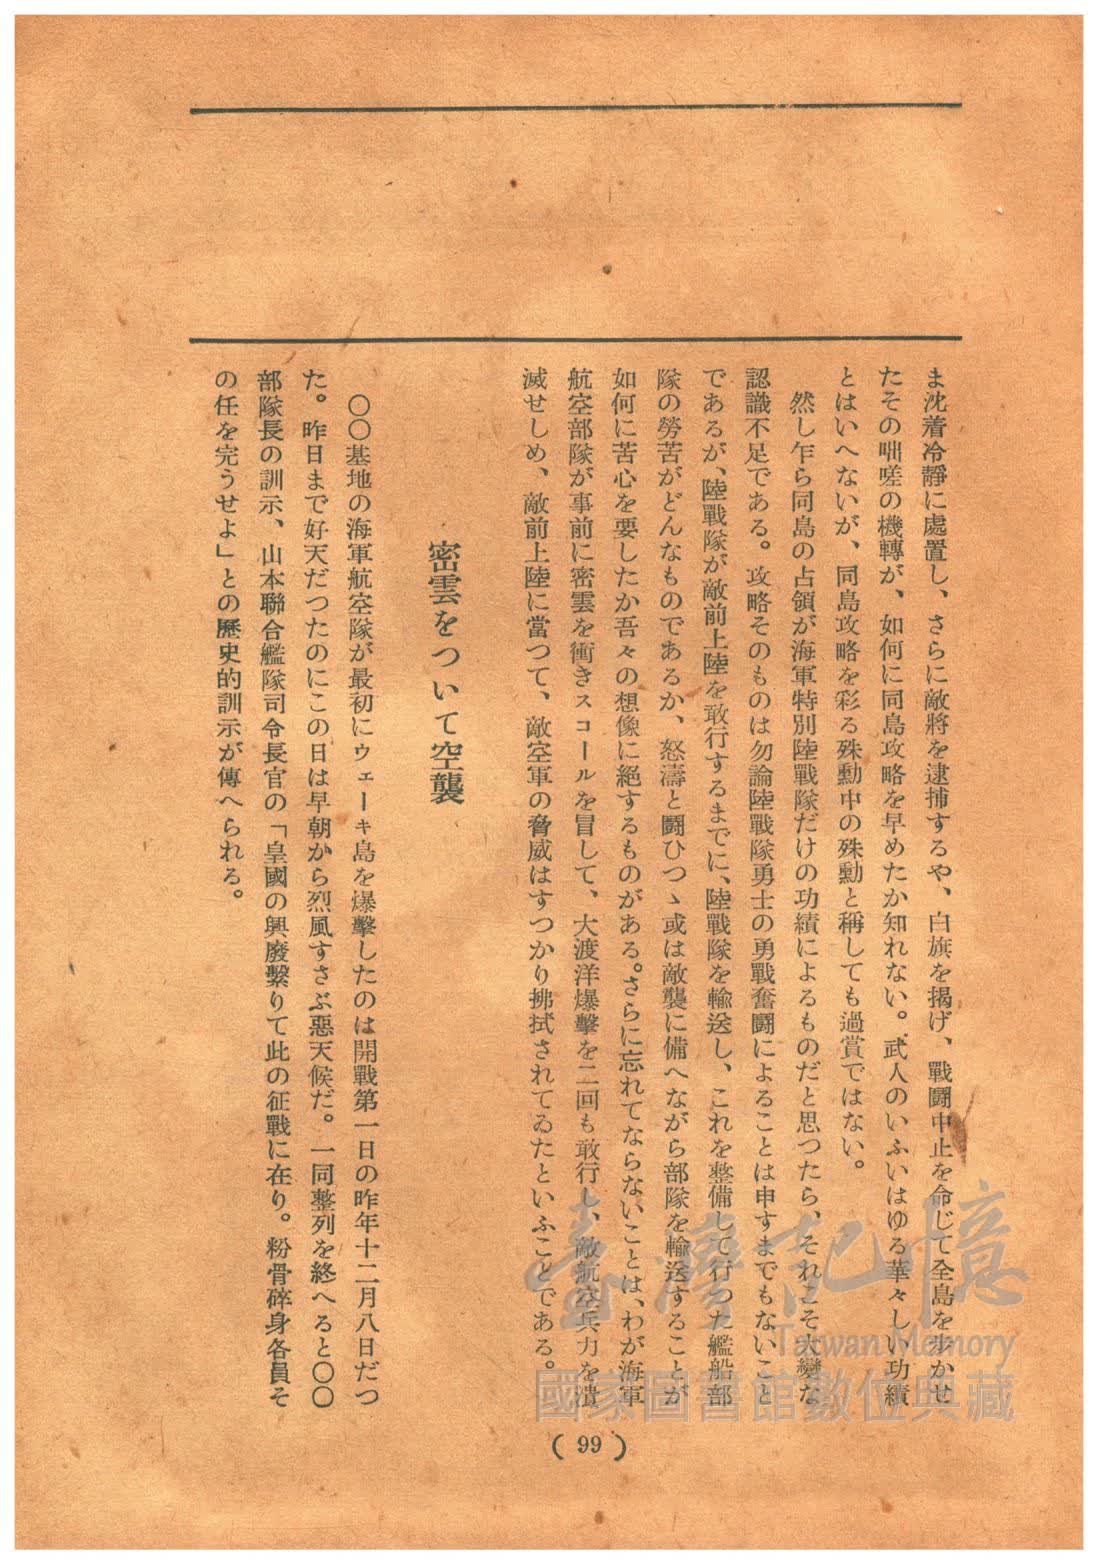 ま沈着冷靜に處置し、さらに敵將を逮捕するや、白旗を揭げ、戰鬪中止を命じて全島を步かせ
たその咄嗟の機轉が、如何に同島攻略を早めたか知れない。武人のいふいはゆる華々しい功績
とはいへないが、同島攻略を彩る殊勳中の殊勳と稱しても過賞ではない。
然し乍ら同島の占領が海軍特別陸戰隊だけの功績によるものだと思つたら、それこそ大變な
認識不足である。攻略そのものは勿論陸戰隊勇士の勇戰奮鬪によることは申すまでもないこと
であるが、陸戰隊が敵前上陸を敢行するまでに、陸戰隊を輸送し、これを整備して行つた艦船部
隊の勞苦がどんなものであるか、怒濤と鬪ひつゝ或は敵襲に備へながら部隊を輸送することが
如何に苦心を要したか吾々の想像に絕するものがある。さらに忘れてならないことは、わが海軍
航空部隊が事前に密雲を衝きスコールを冒して、大渡洋爆擊を二回も敢行し、敵航空兵力を潰
滅せしめ、敵前上陸に當つて、敵空軍の脅威はすつかり拂拭されてゐたといふことである。
密雲をついて空襲
〇〇基地の海軍航空隊が最初にウェーキ島を爆擊したのは開戰第一日の昨年十二月八日だつ
た。昨日まで好天だつたのにこの日は早朝から烈風すさぶ惡天候だ。一同整列を終へると〇〇
部隊長の訓示、山本聯合艦隊司令長官の「皇國の興廢繫りて此の征戰に在り。粉骨碎身各員そ
の任を完うせよ」との歷史的訓示が傳へられる。
(99)
臺灣記憶
Taiwan Memory
國家圖書館數位典藏